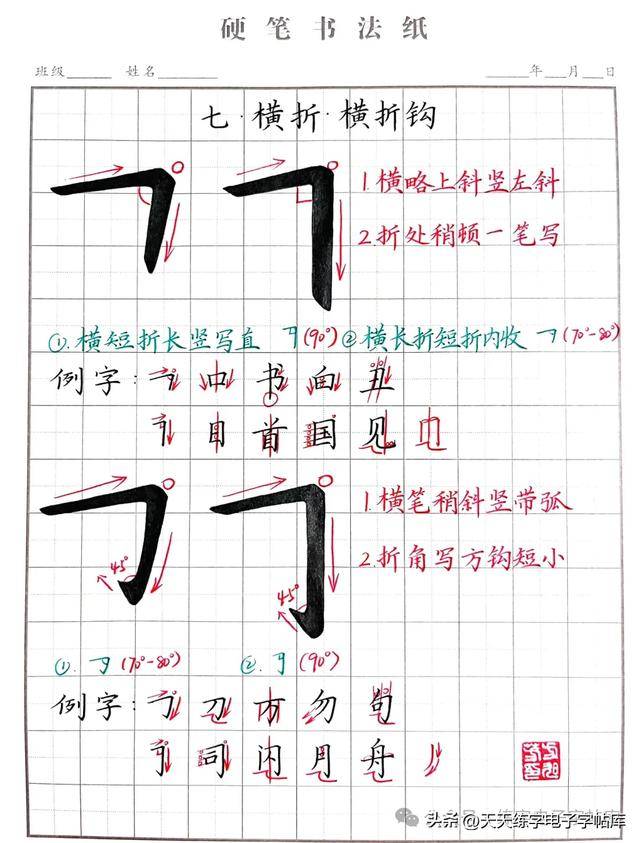 硬笔书法纸
班级______ 姓名________ ______年___月___日
七·横折·横折钩
1.横略上斜竖左斜
2.折处稍顿一笔写
①.横短折长竖写直 𠃍(90°) ②横长折短折内收 𠃍(70°-80°)
例字:𠃍 口 书 向 丑
𠃍 目 首 国 见
1.横笔稍斜竖带弧
2.折角写方钩短小
45°
45°
①.𠃌(70°-80°) ②.𠃌(90°)
例字:𠃌 刀 万 勿 句
𠃌 司 闪 月 舟
头条@天天练字电子字帖库